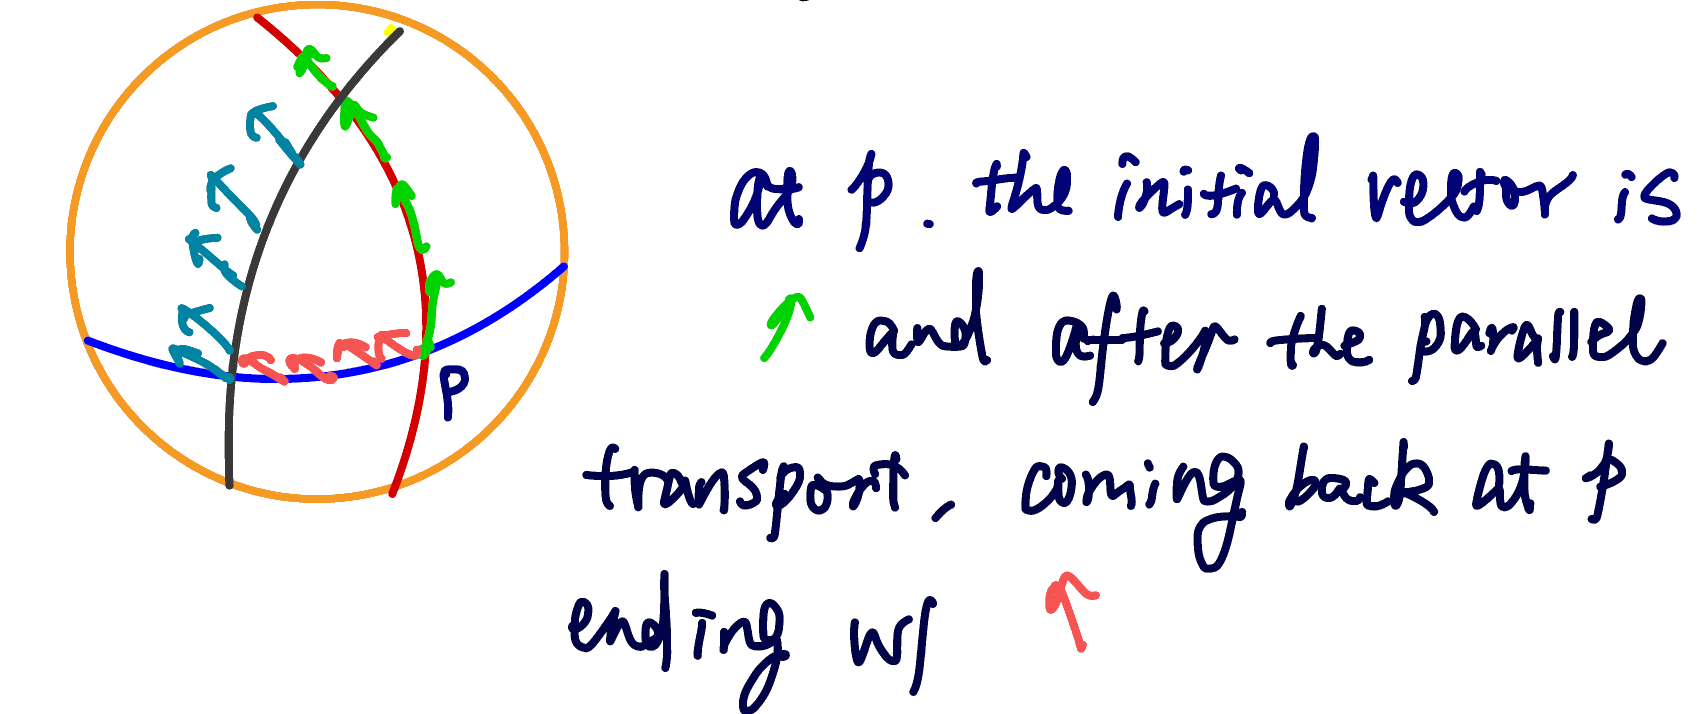 P
at p. the initial vector is
and after the parallel
transport, coming back at p
ending w/